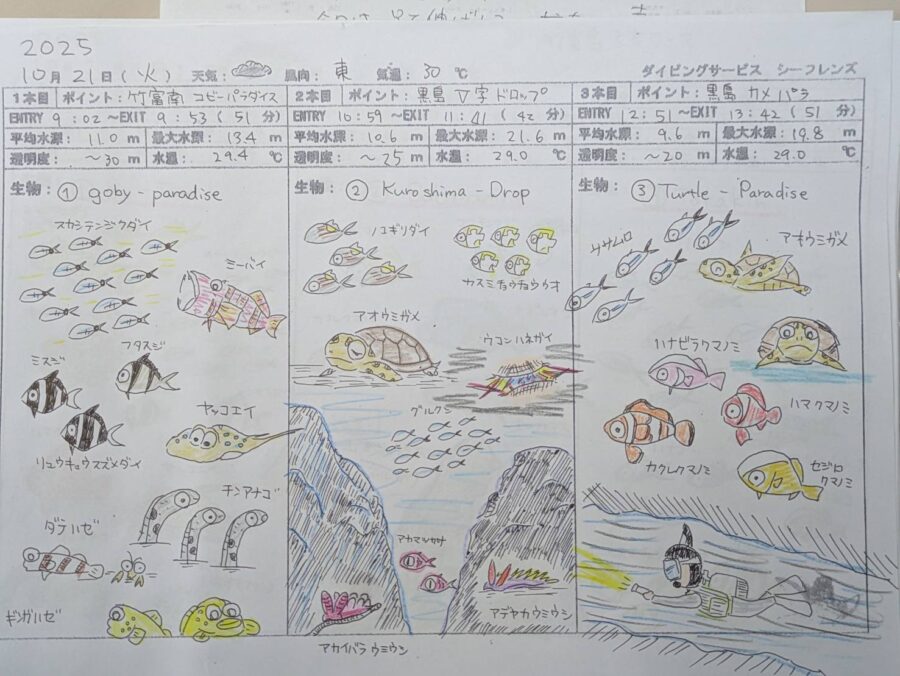 2025
10月21日(火) 天気: 風向: 東 気温: 30 ℃ ダイビングサービス シーフレンズ
1本目 ポイント: 竹富南 コビーパラダイス
ENTRY 9:02 ～EXIT 9:53 (51 分)
平均水深: 11.0 m 最大水深: 13.4 m
透明度: ～30 m 水温: 29.4 ℃
生物: ① goby - paradise
スカシテンジクダイ
ミーバイ
ミスジ
フタスジ
ヤッコエイ
リュウキュウスズメダイ
チンアナゴ
ダテハゼ
ギンガハゼ
2本目 ポイント: 黒島 V字ドロップ
ENTRY 10:59 ～EXIT 11:41 (42 分)
平均水深: 10.6 m 最大水深: 21.6 m
透明度: ～25 m 水温: 29.0 ℃
生物: ② Kuroshima - Drop
ノコギリダイ
カスミチョウチョウウオ
アオウミガメ
ウコンハネガイ
グルクン
アカマツカサ
アデヤカウミウシ
アカイバラウミウシ
3本目 ポイント: 黒島 カメパラ
ENTRY 12:51 ～EXIT 13:42 (51 分)
平均水深: 9.6 m 最大水深: 19.8 m
透明度: ～20 m 水温: 29.0 ℃
生物: ③ Turtle - Paradise
ササムロ
アオウミガメ
ハナビラクマノミ
ハマクマノミ
カクレクマノミ
セジロ
クマノミ